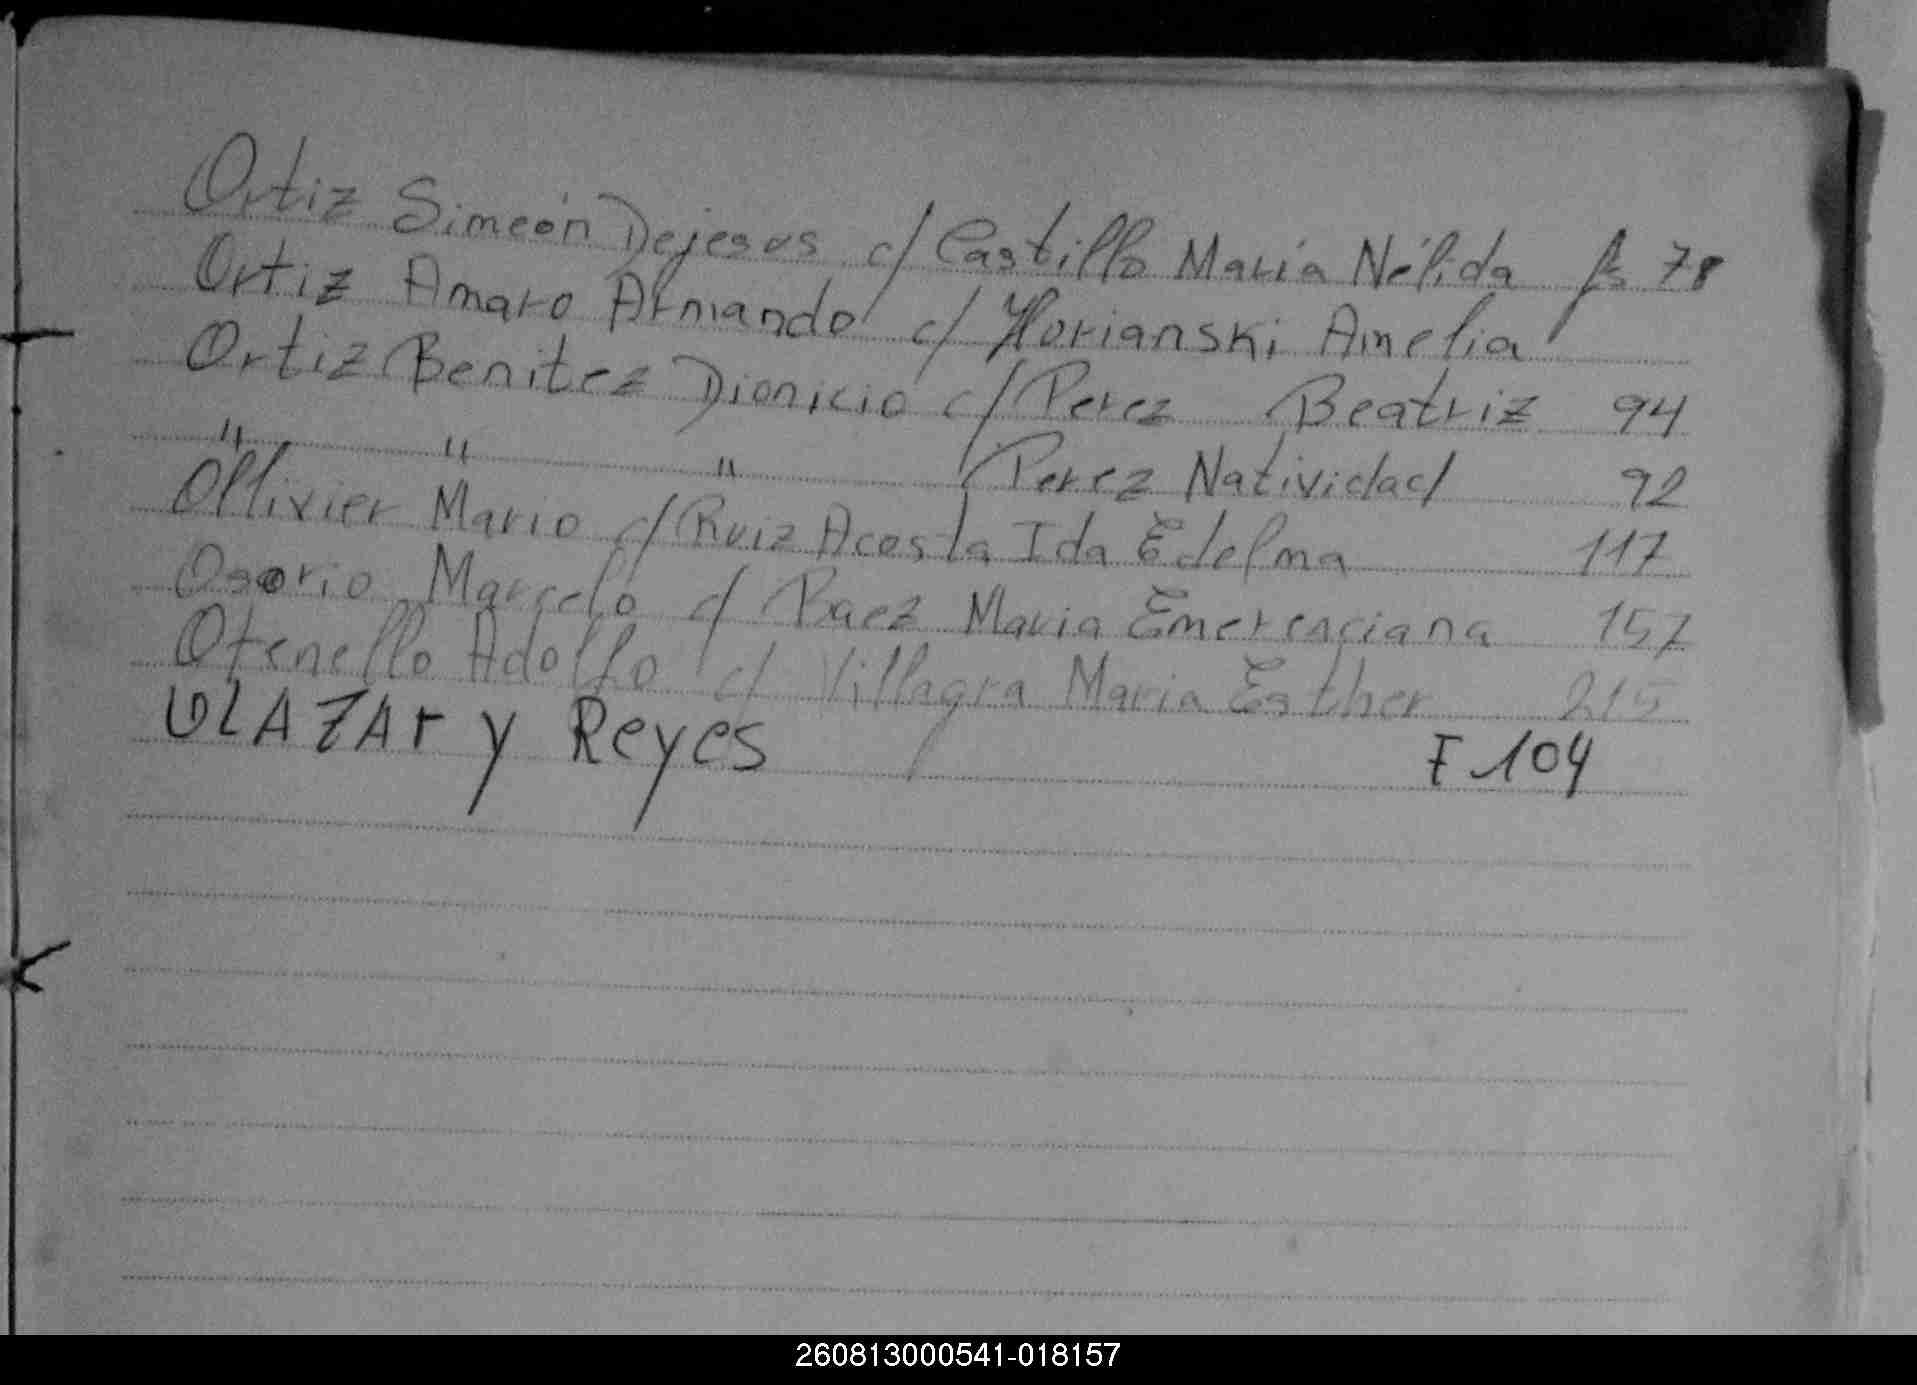 Ortiz Simeón Dejesus c/ Castillo María Nélida fs 78
Ortiz Amaro Armando c/ Horianski Amelia
Ortiz Benitez Dionicio c/ Perez Beatriz 94
" " " Perez Natividad 92
Ollivier Mario c/ Ruiz Acosta Ida Edelma 117
Osorio Marcelo c/ Baez Maria Emerenciana 157
Otenello Adolfo c/ Villagra Maria Esther 215
OLAZAr y Reyes F 104
260813000541-018157